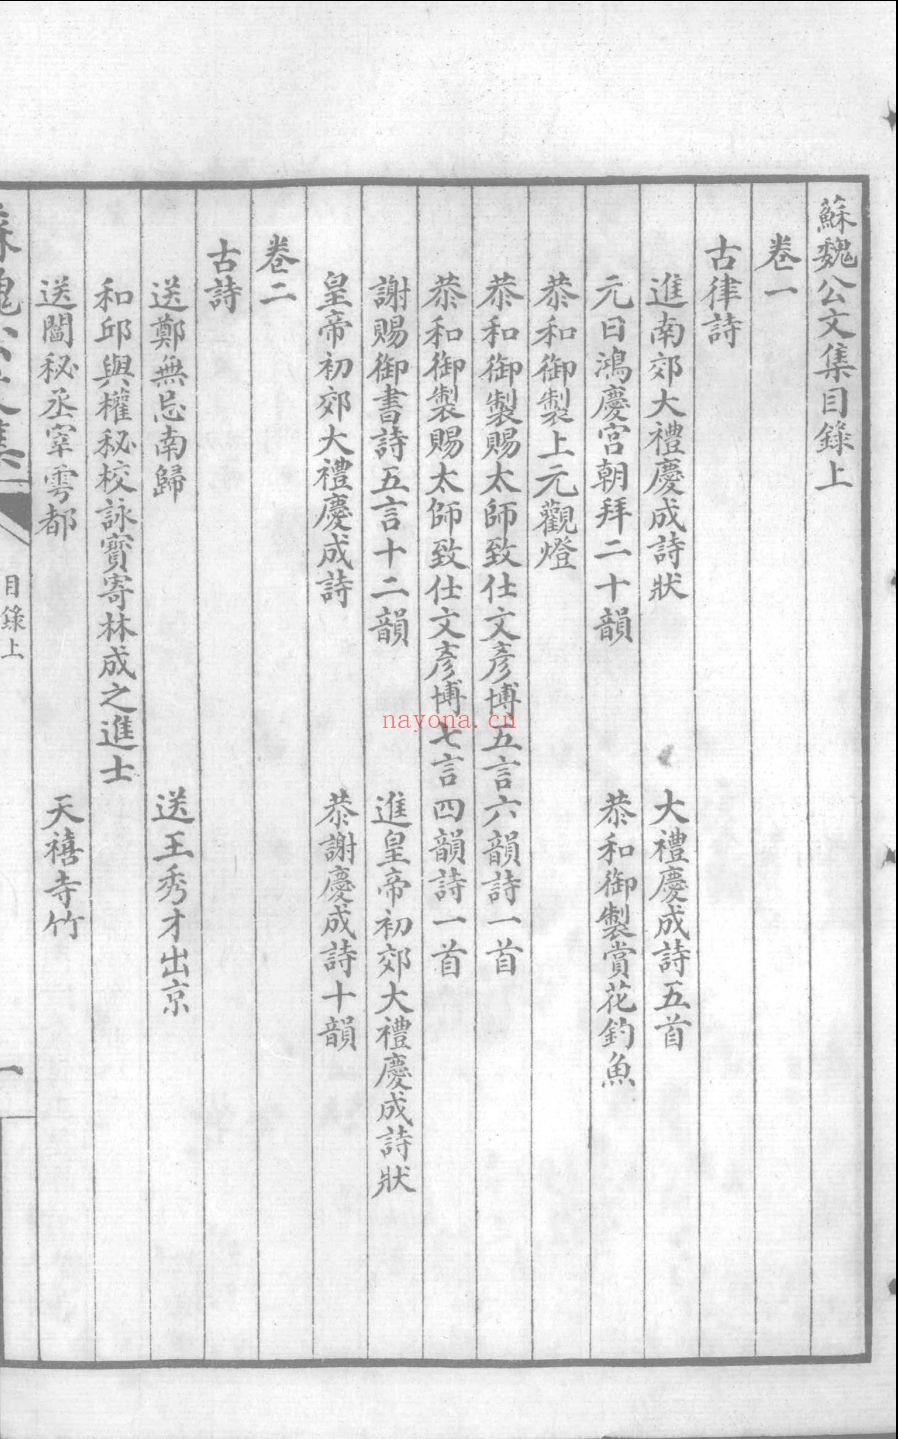 蘇魏公文集目錄上
卷一
古律詩
進南郊大禮慶成詩狀 大禮慶成詩五首
元日鴻慶宮朝拜二十韻 恭和御製賞花釣魚
恭和御製上元觀燈
恭和御製賜太師致仕文彥博五言六韻詩一首
恭和御製賜太師致仕文彥博七言四韻詩一首
謝賜御書詩五言十二韻 進皇帝初郊大禮慶成詩狀
皇帝初郊大禮慶成詩 恭謝慶成詩十韻
卷二
古詩
送鄭無忌南歸 送王秀才出京
和邱與權秘校詠寶寄林成之進士
送閶秘丞宰雩都 天禧寺竹
蘇魏公文集
目錄上
一
nayona.cn